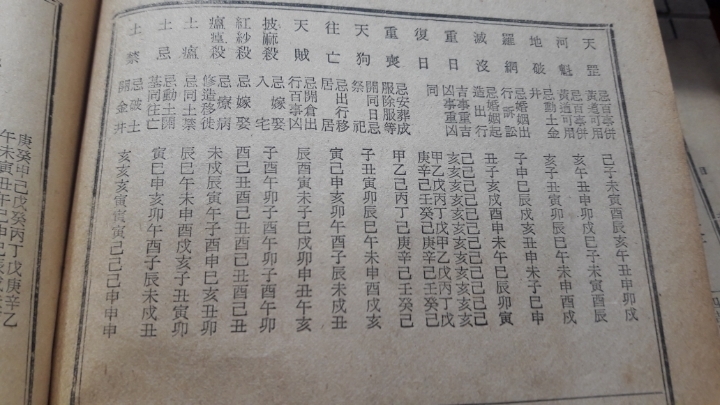 天罡 忌百事併黃道可用 己子未寅酉辰亥午丑申卯戌
河魁 忌百事併黃道可用 亥午丑申卯戌己子未寅酉辰
地破 忌動土金井 亥子丑寅卯辰巳午未申酉戌
羅網 忌婚姻出行訴訟 子申巳辰戌亥丑申未子巳申
滅沒 忌婚姻起造出行 丑子亥戌酉申未午巳辰卯寅
重日 吉事重吉凶事重凶 己己己己己己己己己己己己
亥亥亥亥亥亥亥亥亥亥亥亥
復日 同 甲乙戊丙丁戊甲乙戊丙丁戊
庚辛己壬癸己庚辛己壬癸己
重喪 忌安葬成服除服等 甲乙己丙丁己庚辛己壬癸己
天狗 開同日忌祭祀 子丑寅卯辰巳午未申酉戌亥
往亡 忌出行移居 寅己申亥卯午酉子辰未戌丑
天賊 忌開倉出行百事凶 辰酉寅未子巳戌卯申丑午亥
披麻殺 忌嫁娶入宅 子酉午卯子酉午卯子酉午卯
紅紗殺 忌嫁娶 酉己丑酉己丑酉己丑酉己丑
瘟殺 忌療病修造移徙 未戌辰寅午子酉申巳亥丑卯
土瘟 忌同土禁 辰巳午未申酉戌亥子丑寅卯
土忌 忌動土開墓同往亡 寅巳申亥卯午酉子辰未戌丑
土禁 忌破土開金井 亥亥亥寅寅寅己己己申申申
庚癸甲己戊癸丙丁戊庚辛乙